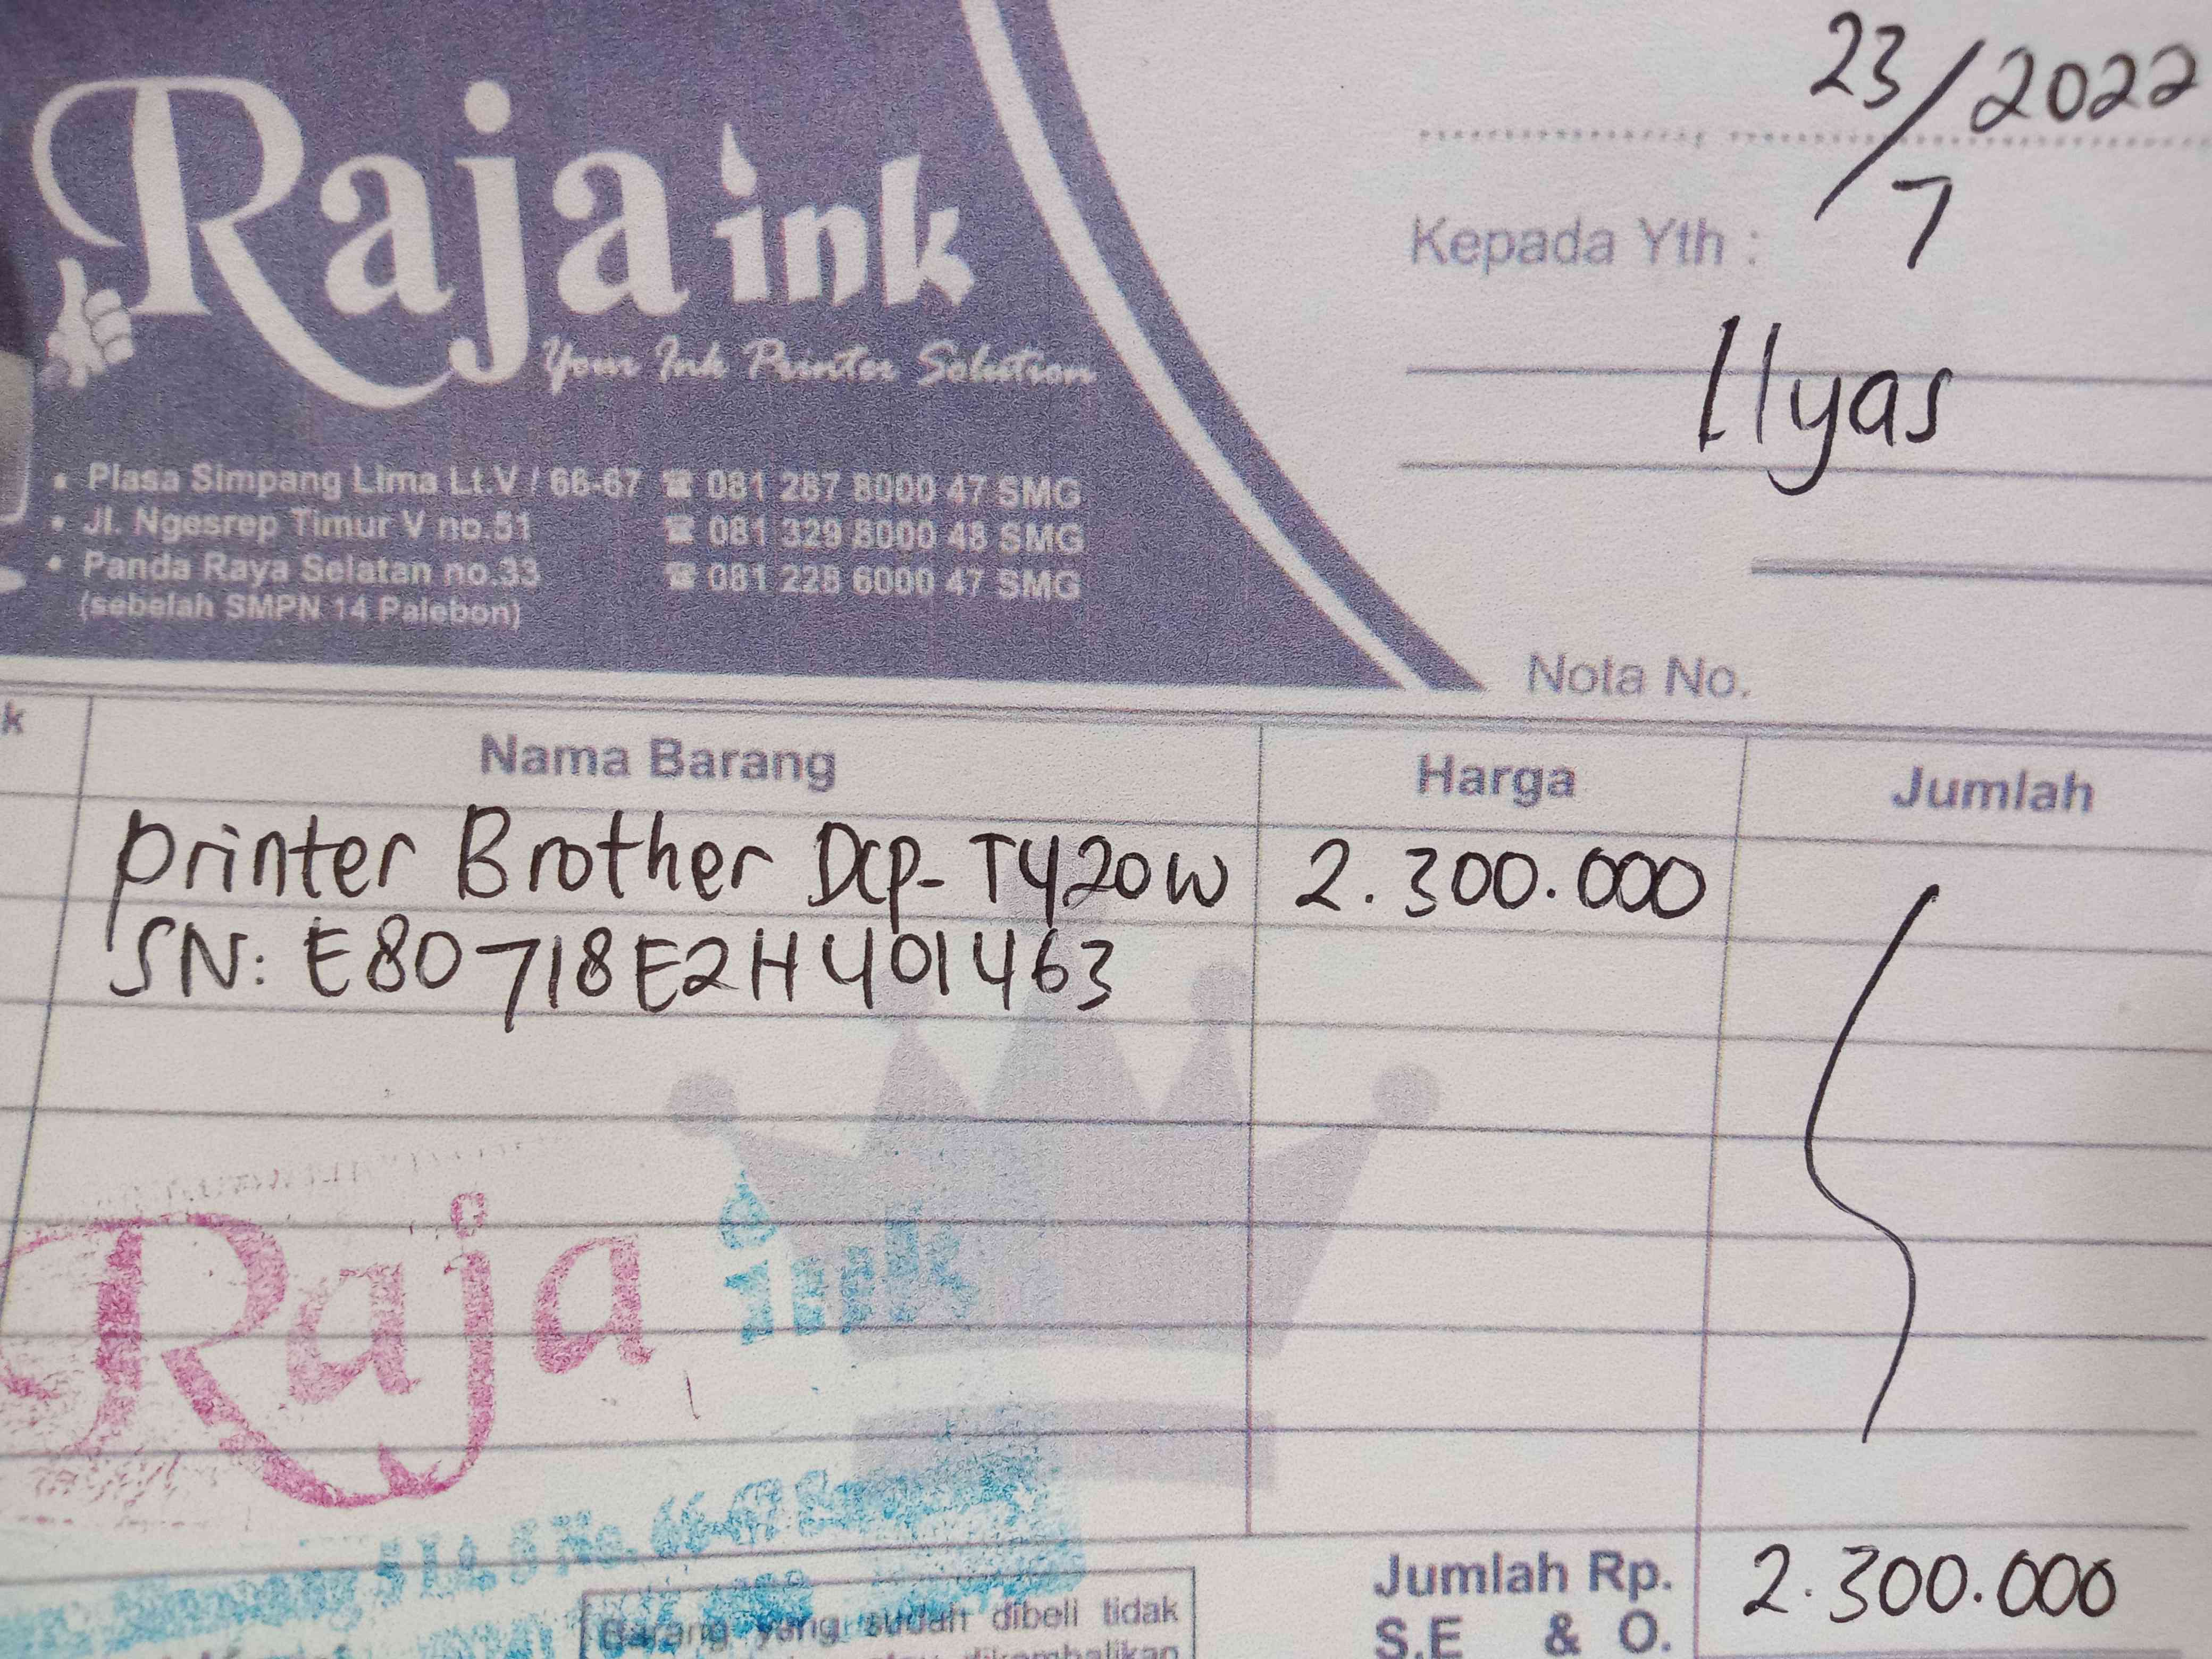 23/7 2022
Raja ink
Your Ink Printer Solution
Kepada Yth :
Ilyas
Plasa Simpang Lima Lt.V / 66-67 ☎ 081 267 8000 47 SMG
Jl. Ngesrep Timur V no.51 ☎ 081 329 8000 48 SMG
Panda Raya Selatan no.33 ☎ 081 228 6000 47 SMG
(sebelah SMPN 14 Palebon)
Nota No.
k Nama Barang Harga Jumlah
printer Brother DCP-T420W 2.300.000
SN: E80718E2H401463
Raja ink
5 Lt. 5 No. 66-67
Jumlah Rp. 2.300.000
Barang yang sudah dibeli tidak
S.E & O.
dikembalikan